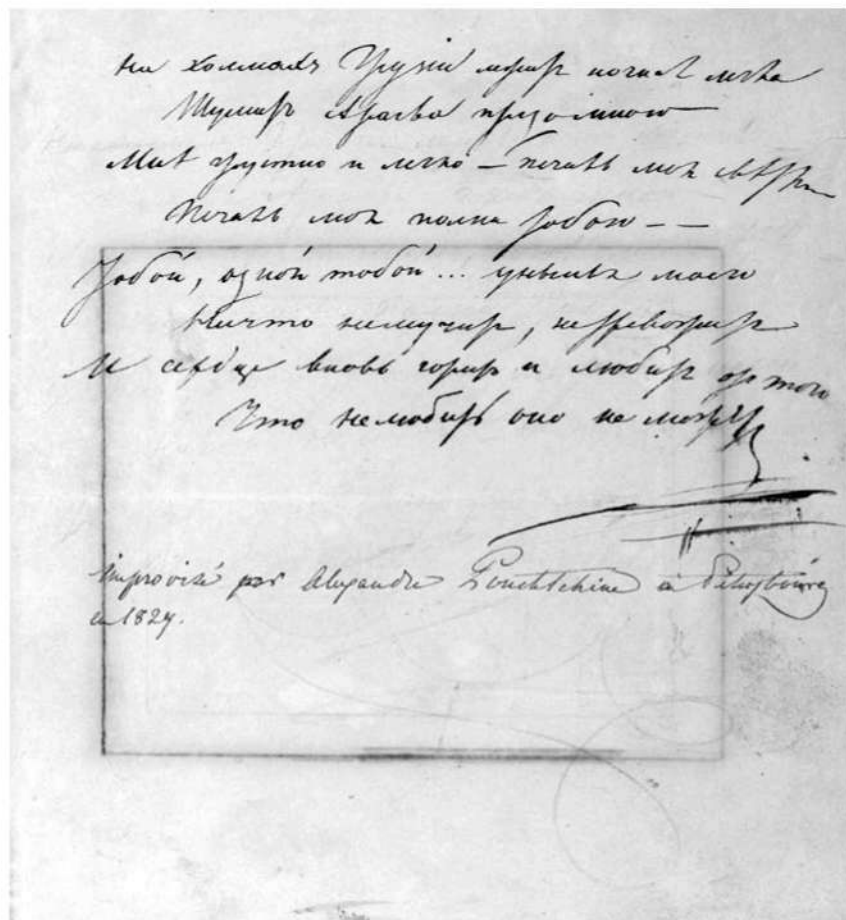 На холмахъ Грузіи лежитъ ночная мгла
Шумитъ Арагва предо мною—
Мнѣ грустно и легко — печаль моя свѣтла
Печаль моя полна тобою — —
Тобой, одной тобой... унынья моего
Ничто немучитъ, нетревожитъ
И сердце вновь горитъ и любитъ отъ того
Что нелюбить оно не можетъ
Improvisé par Alexandre Pouchtchine à Pétersbourg
en 1829.